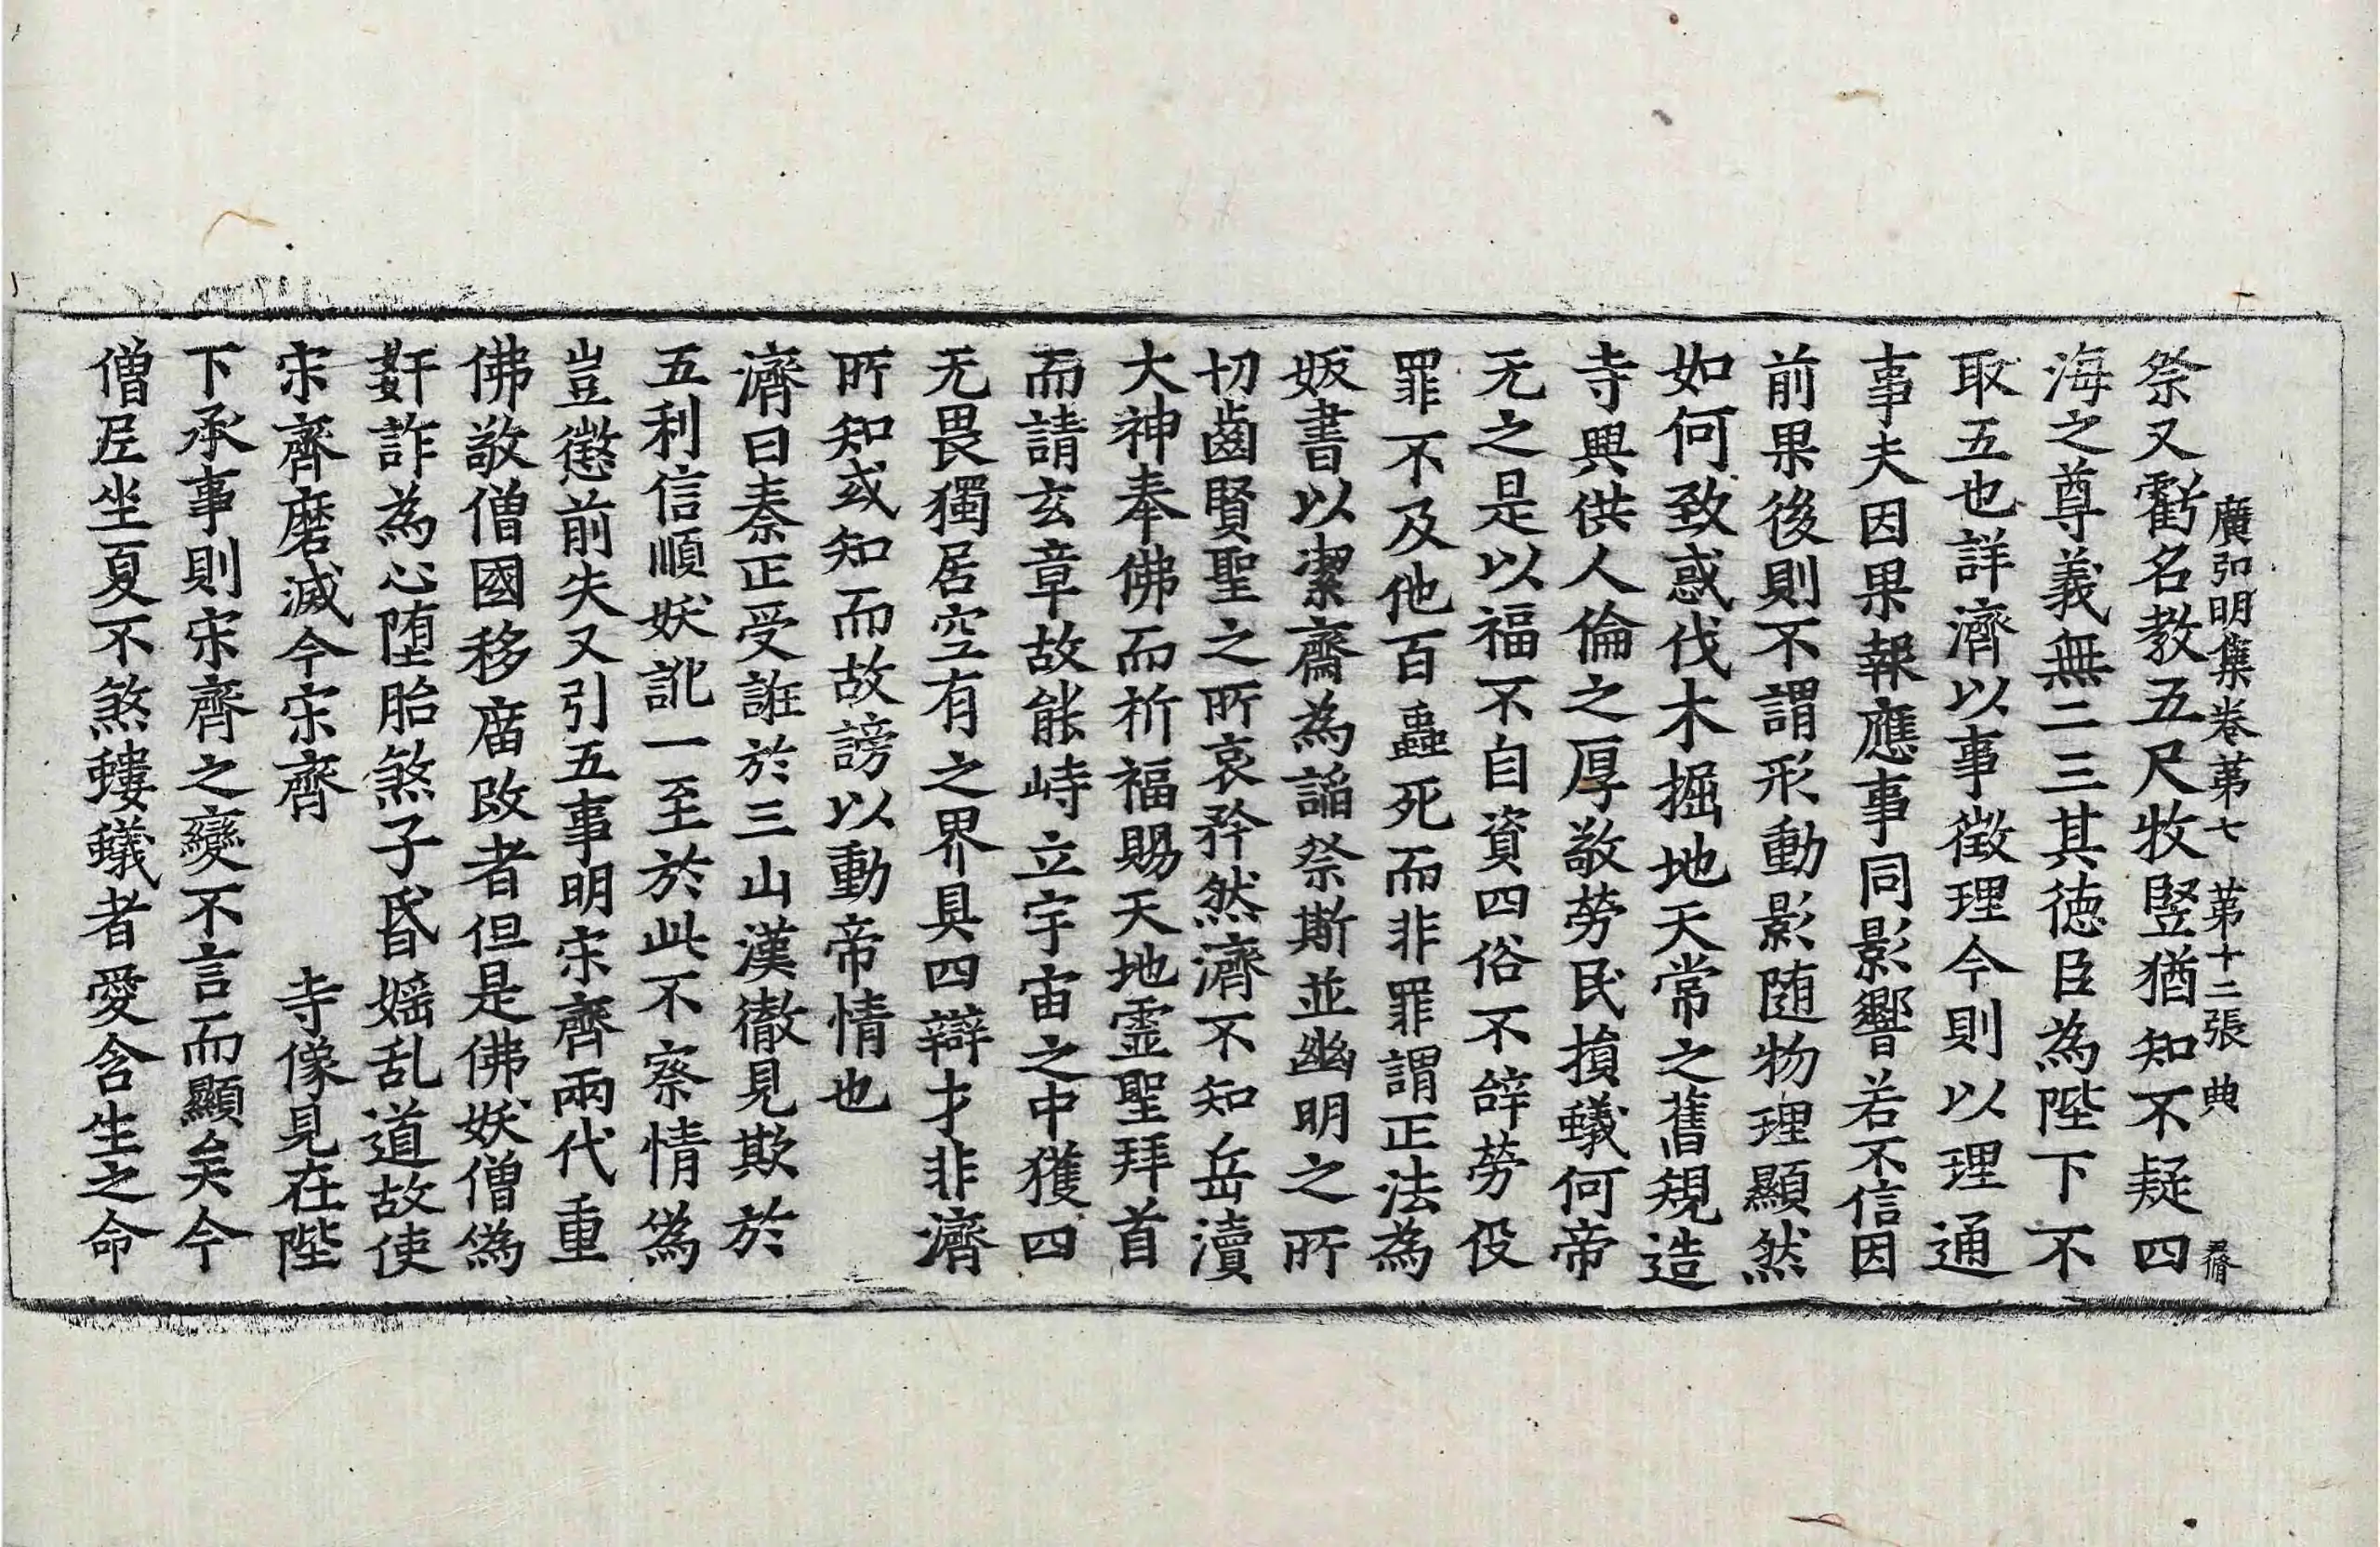 廣弘明集卷第七 第十二張 典
祭又虧名教五尺牧竪猶知不疑四
海之尊義無二三其德臣為陛下不
取五也詳濟以事徵理今則以理通
事夫因果報應事同影響若不信因
前果後則不謂形動影随物理顯然
如何致惑伐木掘地天常之舊規造
寺興供人倫之厚敬勞民損蟻何帝
无之是以福不自資四俗不辝勞役
罪不及他百蟲死而非罪謂正法為
妭書以潔齋為謟祭斯並幽明之所
切齒賢聖之所哀矜然濟不知岳瀆
大神奉佛而祈福賜天地霊聖拜首
而請玄章故能峙立宇宙之中獲四
无畏獨居空有之界具四辯才非濟
所知或知而故謗以動帝情也
濟曰秦正受誑於三山漢徹見欺於
五利信順妖訛一至於此不察情偽
豈懲前失又引五事明宋齊兩代重
佛敬僧國移庿改者但是佛妖僧偽
姧詐為心堕胎煞子昏婬乱道故使
宋齊磨滅今宋齊 寺像見在陛
下承事則宋齊之變不言而顯矣今
僧尼坐夏不煞螻蟻者愛含生之命